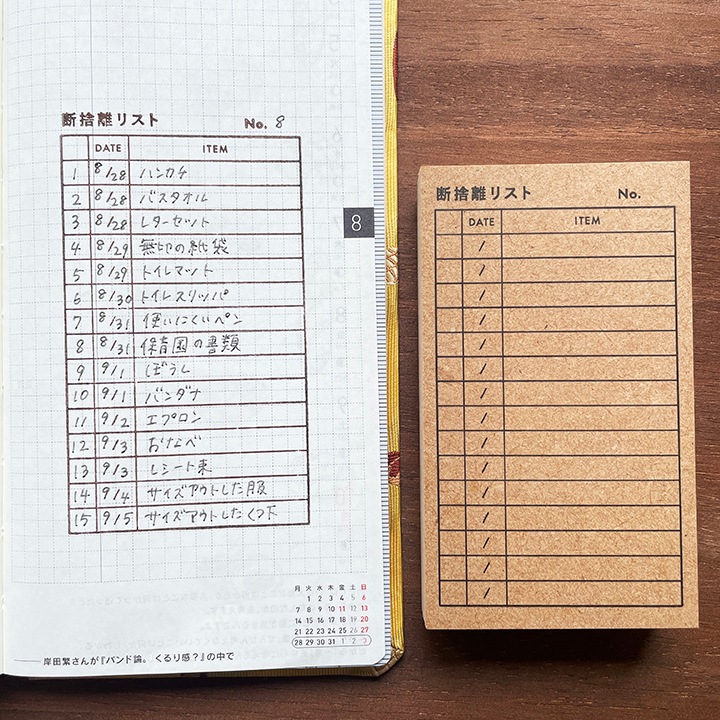 断捨離リスト No. 8
DATE ITEM
1 8/28 ハンカチ
2 8/28 バスタオル
3 8/28 レターセット
4 8/29 無印の紙袋
5 8/29 トイレマット
6 8/30 トイレスリッパ
7 8/31 使いにくいペン
8 8/31 保育園の書類
9 9/1 ぼうし
10 9/1 バンダナ
11 9/2 エプロン
12 9/3 おなべ
13 9/3 レシート束
14 9/4 サイズアウトした服
15 9/5 サイズアウトしたくつ下
8
月 火 水 木 金 土 日
1 2 3 4 5 6
7 8 9 10 11 12 13
14 15 16 17 18 19 20
21 22 23 24 25 26 27
28 29 30 31 1 2 3
岸田繁さんが『バンド論。 くるり感？』の中で
断捨離リスト No.
DATE ITEM
/
/
/
/
/
/
/
/
/
/
/
/
/
/
/